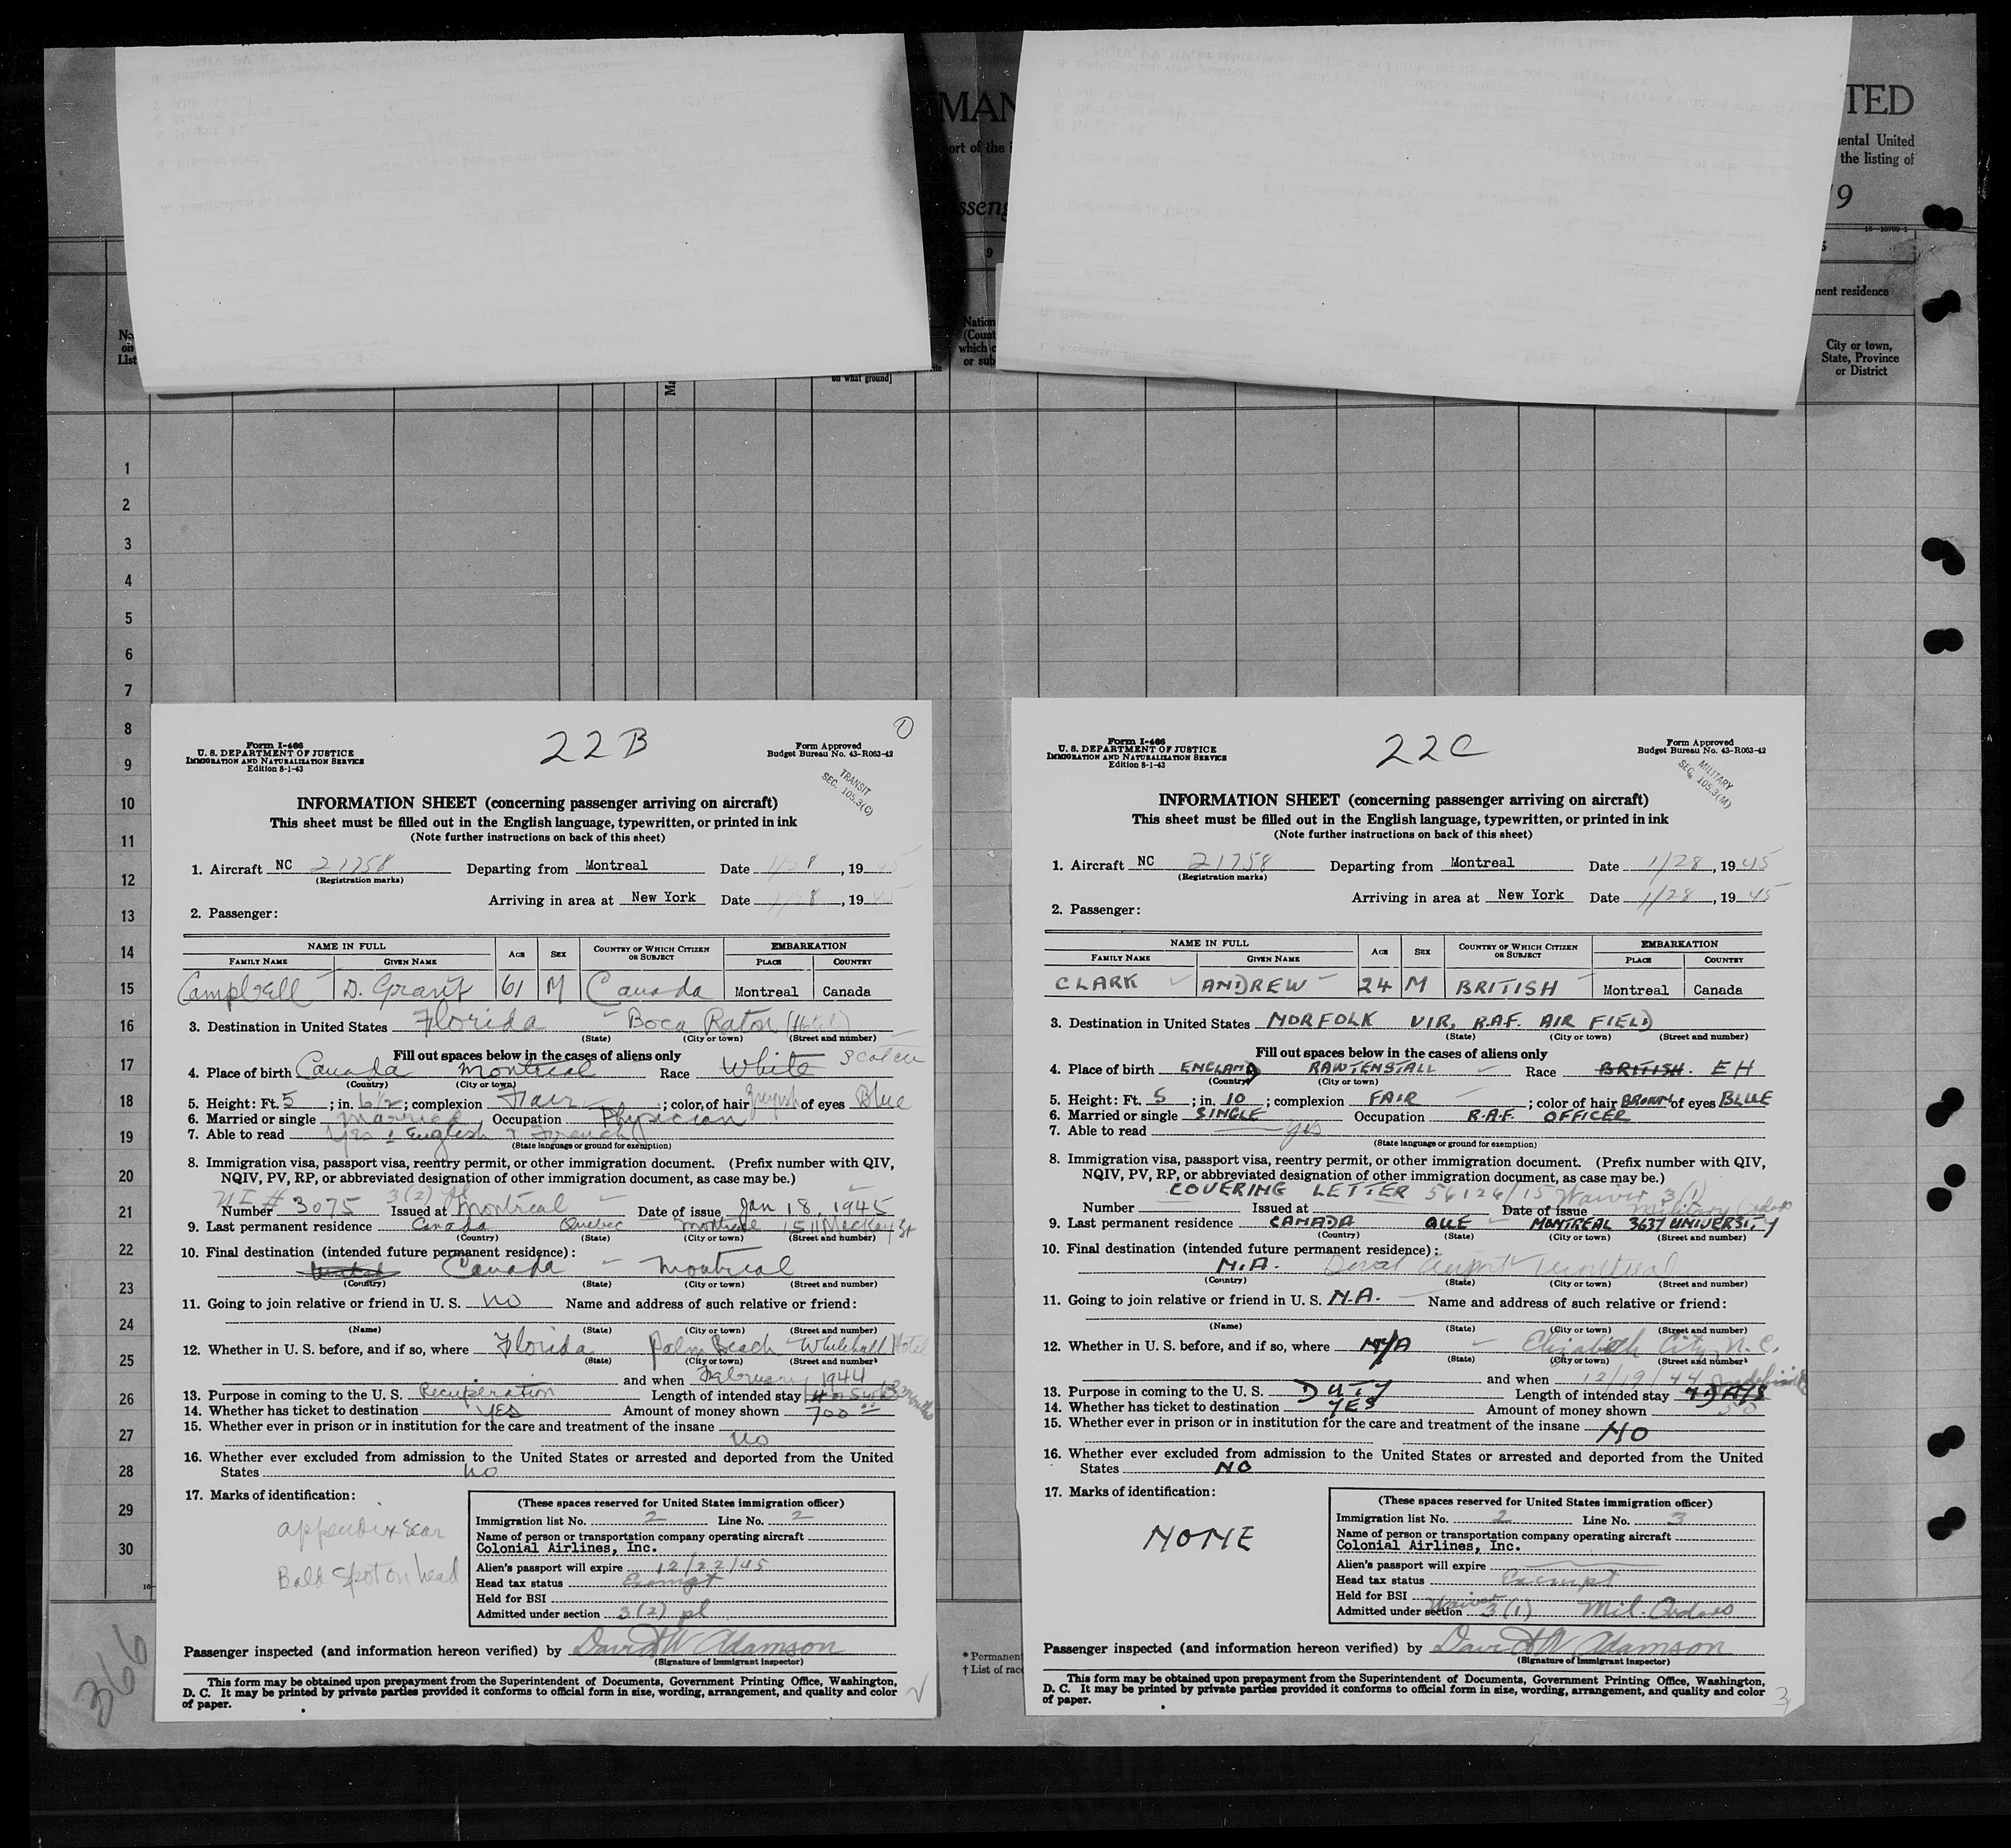 MAN
TED
ort of the i
ental United
the listing of
sseng
9
16—18799-1
9
5
No.
on
List
Ma
on what ground]
Nation
(Count
which c
or sub
nent residence
City or town,
State, Province
or District
1
2
3
4
5
6
7
8
9
10
11
12
13
14
15
16
17
18
19
20
21
22
23
24
25
26
27
28
29
30
16
366
* Permanent
† List of race
22B
1
Form I-466
U. S. DEPARTMENT OF JUSTICE
IMMIGRATION AND NATURALIZATION SERVICE
Edition 8-1-43
Form Approved
Budget Bureau No. 43-R063-42
TRANSIT
SEC. 105.3(C)
INFORMATION SHEET (concerning passenger arriving on aircraft)
This sheet must be filled out in the English language, typewritten, or printed in ink
(Note further instructions on back of this sheet)
1. Aircraft NC 21758 Departing from Montreal Date 1/28, 1945
(Registration marks)
Arriving in area at New York Date 1/28, 1945
2. Passenger:
NAME IN FULL AGE SEX COUNTRY OF WHICH CITIZEN OR SUBJECT EMBARKATION
FAMILY NAME GIVEN NAME PLACE COUNTRY
Campbell D. Grant 61 M Canada Montreal Canada
3. Destination in United States Florida Boca Raton (Hotel)
(State) (City or town) (Street and number)
Fill out spaces below in the cases of aliens only
4. Place of birth Canada Montreal Race White Scotch
(Country) (City or town)
5. Height: Ft. 5; in. 6 1/2; complexion Fair; color of hair Greyish of eyes Blue
6. Married or single Married Occupation Physician
7. Able to read Yes : English & French
(State language or ground for exemption)
8. Immigration visa, passport visa, reentry permit, or other immigration document. (Prefix number with QIV,
NQIV, PV, RP, or abbreviated designation of other immigration document, as case may be.)
3(2) pl
Number 3075 Issued at Montreal Date of issue Jan 18. 1945
9. Last permanent residence Canada Quebec Montreal 1511 MacKay St
(Country) (State) (City or town) (Street and number)
10. Final destination (intended future permanent residence):
United Canada Montreal
(Country) (State) (City or town) (Street and number)
11. Going to join relative or friend in U. S. no Name and address of such relative or friend:
(Name) (State) (City or town) (Street and number)
12. Whether in U. S. before, and if so, where Florida Palm Beach Whitehall Hotel
(State) (City or town) (Street and number)
and when February 1944
13. Purpose in coming to the U. S. Recuperation Length of intended stay 3 months
14. Whether has ticket to destination YES Amount of money shown 700 00
15. Whether ever in prison or in institution for the care and treatment of the insane
no
16. Whether ever excluded from admission to the United States or arrested and deported from the United
States no
17. Marks of identification:
appendix scar
Bald spot on head
(These spaces reserved for United States immigration officer)
Immigration list No. 2 Line No. 2
Name of person or transportation company operating aircraft
Colonial Airlines, Inc.
Alien's passport will expire 12/22/45
Head tax status Exempt
Held for BSI
Admitted under section 3(2) pl
Passenger inspected (and information hereon verified) by David W Adamson
(Signature of immigrant inspector)
This form may be obtained upon prepayment from the Superintendent of Documents, Government Printing Office, Washington,
D. C. It may be printed by private parties provided it conforms to official form in size, wording, arrangement, and quality and color
of paper.
22C
Form I-466
U. S. DEPARTMENT OF JUSTICE
IMMIGRATION AND NATURALIZATION SERVICE
Edition 8-1-43
Form Approved
Budget Bureau No. 43-R063-42
MILITARY
SEC. 105.3(M)
INFORMATION SHEET (concerning passenger arriving on aircraft)
This sheet must be filled out in the English language, typewritten, or printed in ink
(Note further instructions on back of this sheet)
1. Aircraft NC 21758 Departing from Montreal Date 1/28, 1945
(Registration marks)
Arriving in area at New York Date 1/28, 1945
2. Passenger:
NAME IN FULL AGE SEX COUNTRY OF WHICH CITIZEN OR SUBJECT EMBARKATION
FAMILY NAME GIVEN NAME PLACE COUNTRY
CLARK ANDREW 24 M BRITISH Montreal Canada
3. Destination in United States NORFOLK VIR. R.A.F. AIR FIELD
(State) (City or town) (Street and number)
Fill out spaces below in the cases of aliens only
4. Place of birth ENGLAND RAWTENSTALL Race BRITISH. EH
(Country) (City or town)
5. Height: Ft. 5; in. 10; complexion FAIR; color of hair BROWN of eyes BLUE
6. Married or single SINGLE Occupation R.A.F. OFFICER
7. Able to read yes
(State language or ground for exemption)
8. Immigration visa, passport visa, reentry permit, or other immigration document. (Prefix number with QIV,
NQIV, PV, RP, or abbreviated designation of other immigration document, as case may be.)
COVERING LETTER 56126/15 Waiver 3(1)
Number Issued at Date of issue Military Orders
9. Last permanent residence CANADA QUE MONTREAL 3637 UNIVERSITY
(Country) (State) (City or town) (Street and number)
10. Final destination (intended future permanent residence):
N.A. Dorval Airport Montreal
(Country) (State) (City or town) (Street and number)
11. Going to join relative or friend in U. S. N.A. Name and address of such relative or friend:
(Name) (State) (City or town) (Street and number)
12. Whether in U. S. before, and if so, where N/A Elizabeth City N. C.
(State) (City or town) (Street and number)
and when 12/19/44 Indefinite
13. Purpose in coming to the U. S. DUTY Length of intended stay 7 DAYS
14. Whether has ticket to destination YES Amount of money shown 50
15. Whether ever in prison or in institution for the care and treatment of the insane
NO
16. Whether ever excluded from admission to the United States or arrested and deported from the United
States NO
17. Marks of identification:
NONE
(These spaces reserved for United States immigration officer)
Immigration list No. 2 Line No. 3
Name of person or transportation company operating aircraft
Colonial Airlines, Inc.
Alien's passport will expire
Head tax status Exempt
Held for BSI
Admitted under section Waiver 3(1) Mil. Orders
Passenger inspected (and information hereon verified) by David W Adamson
(Signature of immigrant inspector)
This form may be obtained upon prepayment from the Superintendent of Documents, Government Printing Office, Washington,
D. C. It may be printed by private parties provided it conforms to official form in size, wording, arrangement, and quality and color
of paper.
3